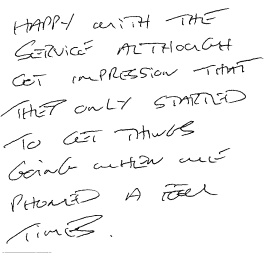 HAPPY WITH THE
SERVICE ALTHOUGH
GET IMPRESSION THAT
THEY ONLY STARTED
TO GET THINGS
GOING WHEN WE
PHONED A FEW
TIMES.